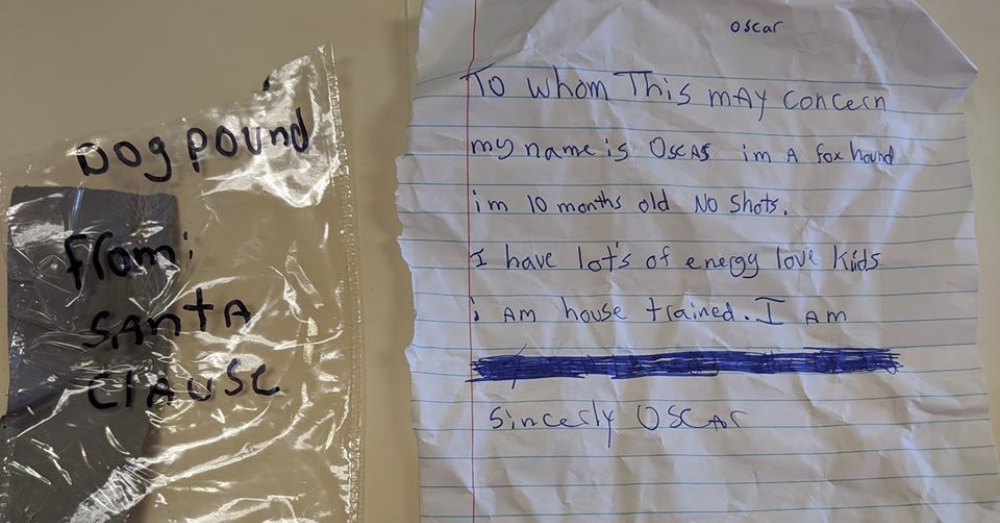 Dog pound
from:
SANTA
CLAUSE
oscar
To whom This mAy concern
my name is OSCAR im A fox hound
im 10 months old No Shots.
I have lot's of energy love kids
i Am house trained. I Am
Sincerly OSCAR